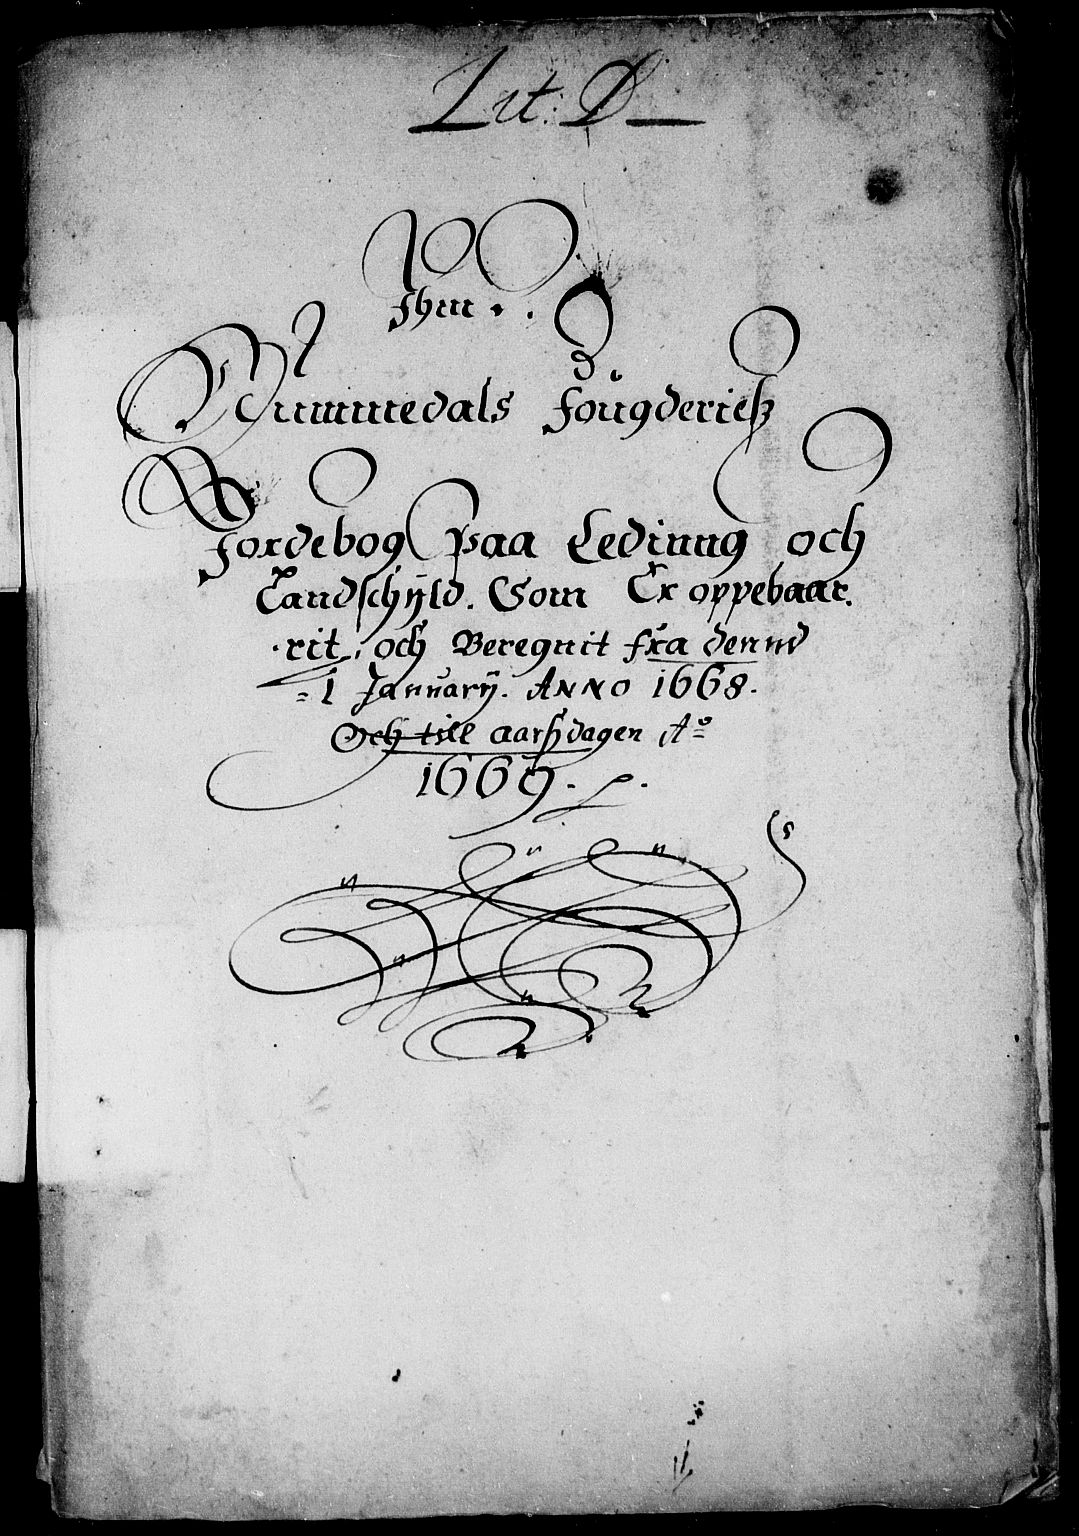 Lit: D
Jhm..
Nummedals Fougderiesz
Jordebog paa Ledinng och
Landschÿld. Som Er oppebaar.
rit, och Beregnit fra dennd
1 Januarij. ANNO 1668.
Och till aarszdagen Aº
1669.